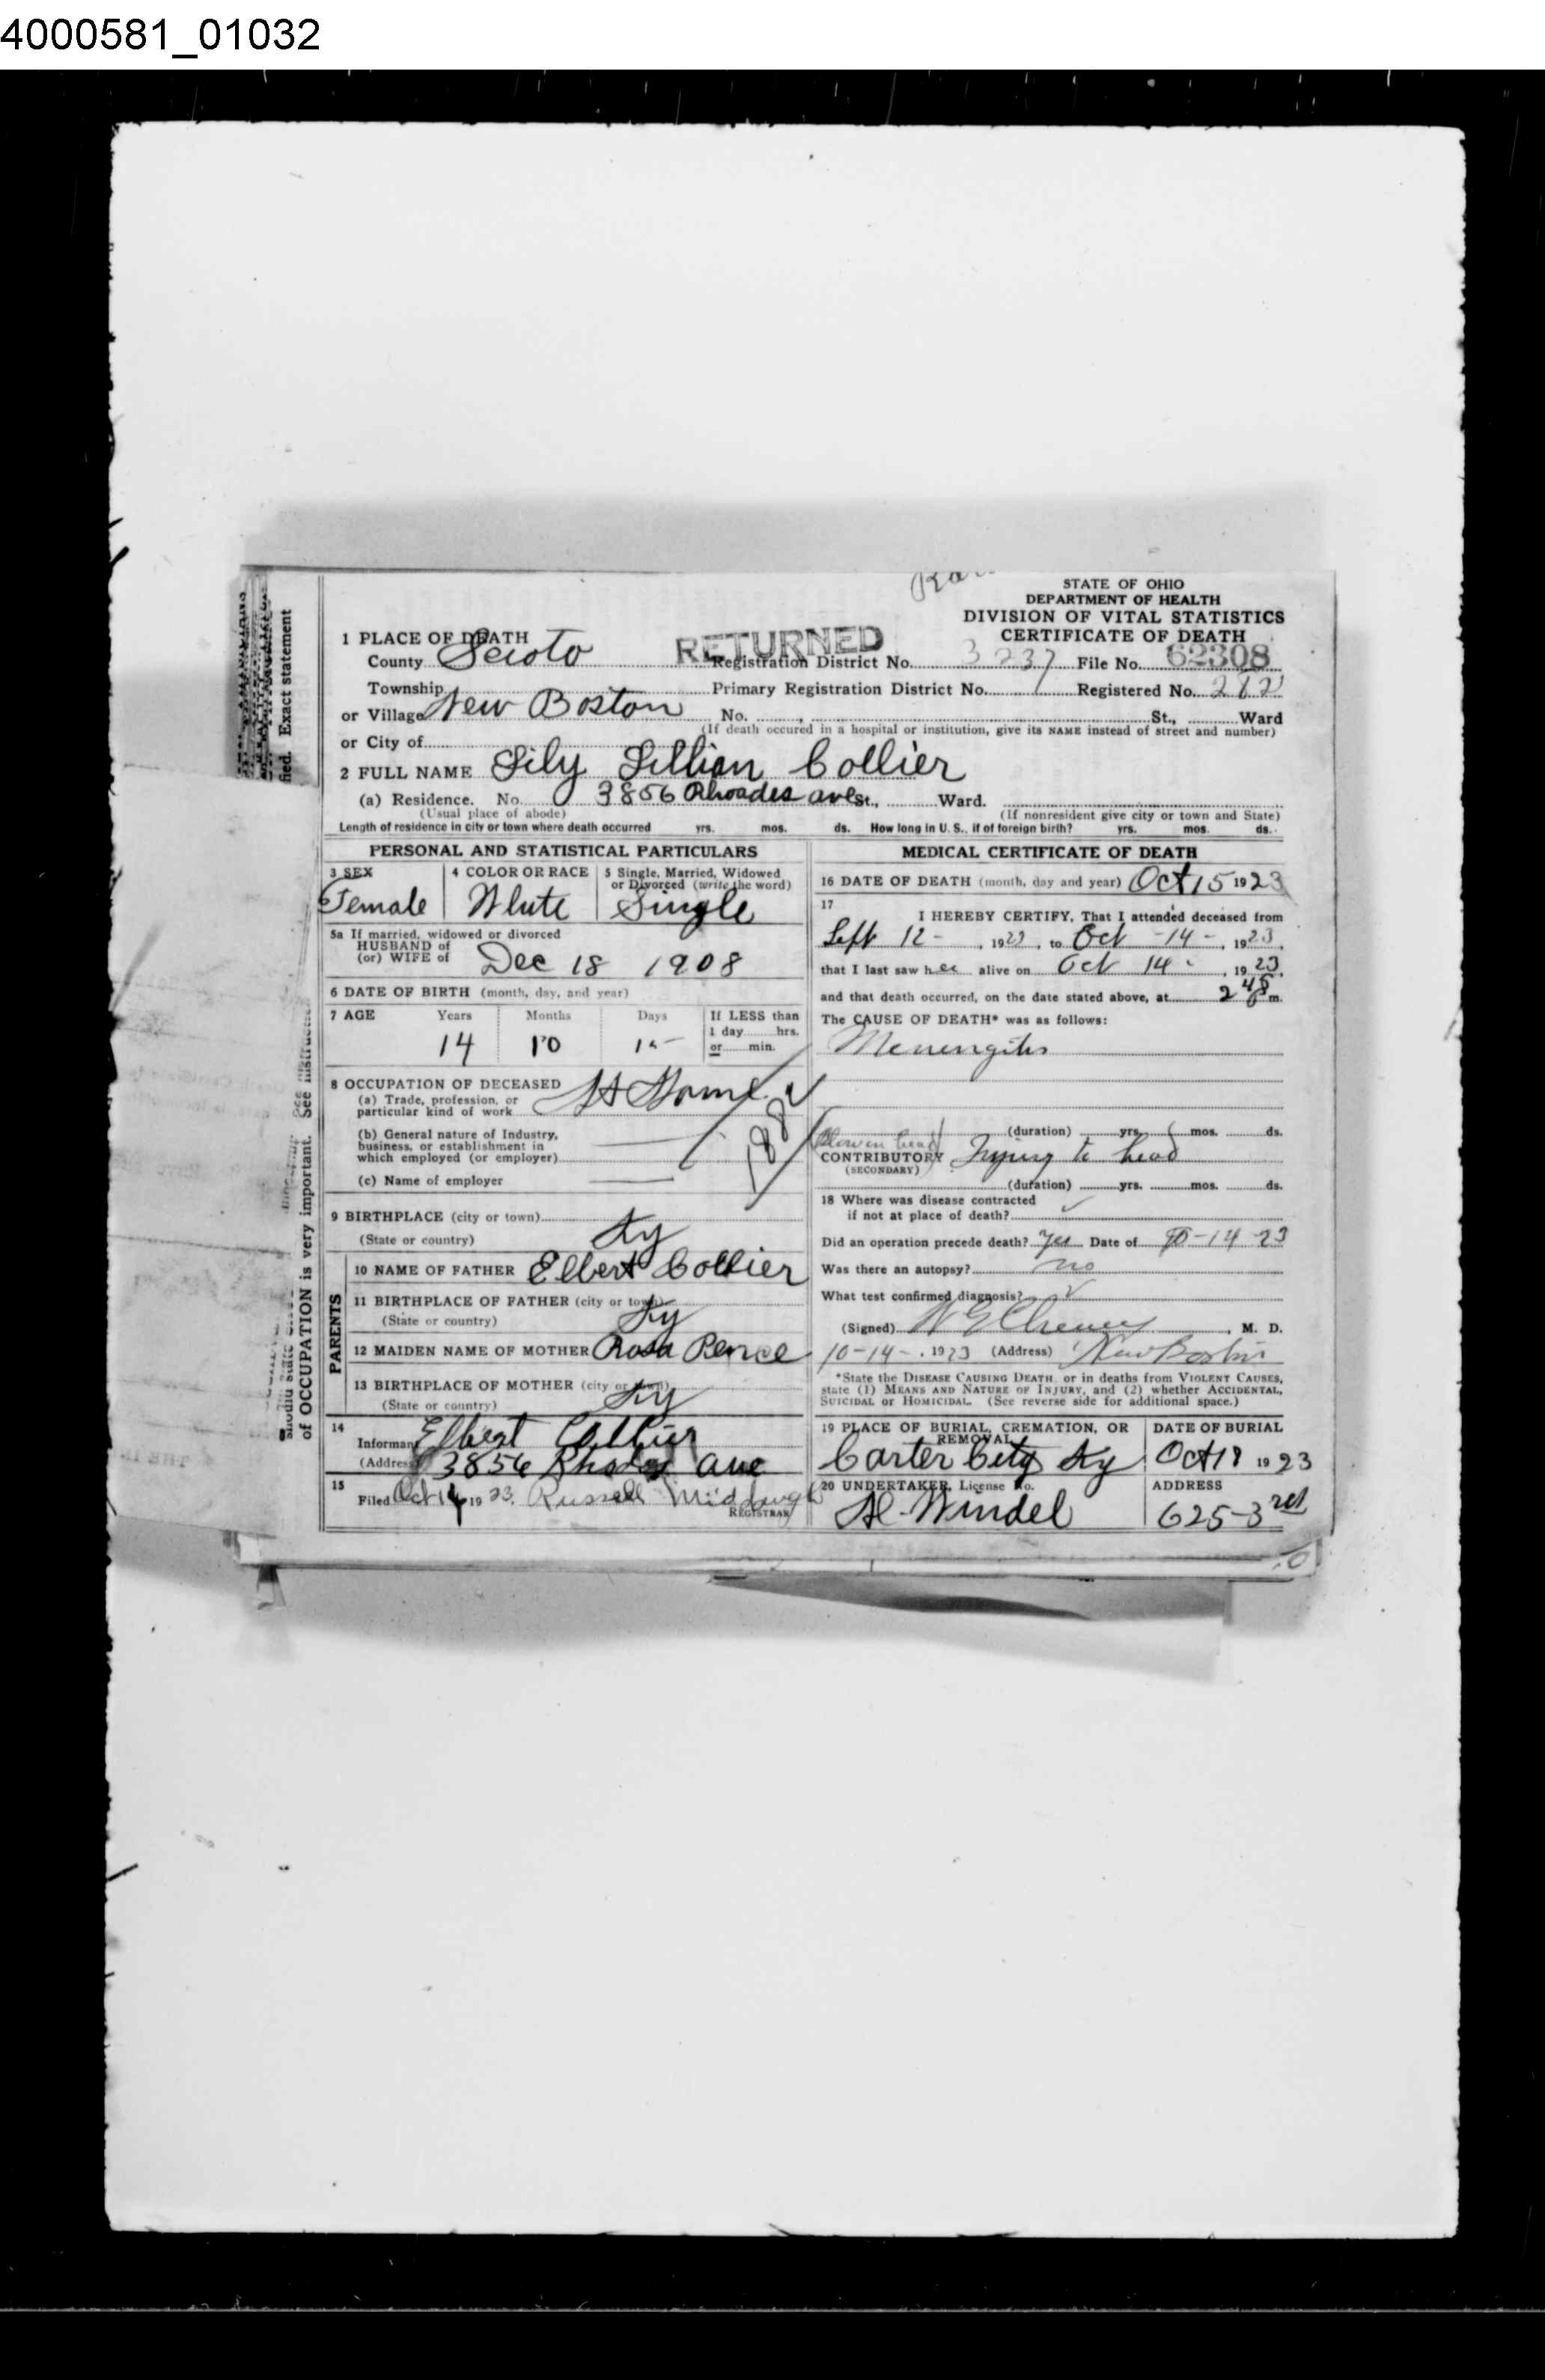 4000581_01032
STATE OF OHIO
DEPARTMENT OF HEALTH
DIVISION OF VITAL STATISTICS
CERTIFICATE OF DEATH
1 PLACE OF DEATH
RETURNED
County Scioto Registration District No. 3237 File No. 62308
Township Primary Registration District No. Registered No.
or Village New Boston No. St., Ward
(If death occured in a hospital or institution, give its NAME instead of street and number)
or City of
2 FULL NAME Lily Lillian Collier
(a) Residence. No. 3856 Rhoades ave St., Ward.
(Usual place of abode) (If nonresident give city or town and State)
Length of residence in city or town where death occurred yrs. mos. ds. How long in U. S., if of foreign birth? yrs. mos. ds.
PERSONAL AND STATISTICAL PARTICULARS
3 SEX 4 COLOR OR RACE 5 Single, Married, Widowed
or Divorced (write the word)
Female White Single
5a If married, widowed or divorced
HUSBAND of
(or) WIFE of
Dec 18 1908
6 DATE OF BIRTH (month, day, and year)
7 AGE Years Months Days If LESS than
1 day hrs.
or min.
14 10
8 OCCUPATION OF DECEASED
(a) Trade, profession, or
particular kind of work At Home
(b) General nature of Industry,
business, or establishment in
which employed (or employer)
(c) Name of employer
9 BIRTHPLACE (city or town)
(State or country) Ky
PARENTS
10 NAME OF FATHER Elbert Collier
11 BIRTHPLACE OF FATHER (city or town)
(State or country) Ky
12 MAIDEN NAME OF MOTHER Rosa Pence
13 BIRTHPLACE OF MOTHER (city or town)
(State or country) Ky
14
Informant Elbert Collier
(Address) 3856 Rhodes Ave
15
Filed Oct 1923. Russell Middaugh
REGISTRAR
MEDICAL CERTIFICATE OF DEATH
16 DATE OF DEATH (month, day and year) Oct 15 1923
17
I HEREBY CERTIFY, That I attended deceased from
Sept 12 - , 1923, to Oct - 14 - , 1923,
that I last saw her alive on Oct 14 - , 1923,
and that death occurred, on the date stated above, at m.
The CAUSE OF DEATH* was as follows:
Menengitis
(duration) yrs. mos. ds.
Blow on head
CONTRIBUTORY Injury to head
(SECONDARY)
(duration) yrs. mos. ds.
18 Where was disease contracted
if not at place of death?
Did an operation precede death? Yes Date of 10-14-23
Was there an autopsy? no
What test confirmed diagnosis?
(Signed) , M. D.
10-14-, 1923 (Address) New Boston
*State the DISEASE CAUSING DEATH, or in deaths from VIOLENT CAUSES,
state (1) MEANS AND NATURE OF INJURY, and (2) whether ACCIDENTAL,
SUICIDAL or HOMICIDAL. (See reverse side for additional space.)
19 PLACE OF BURIAL, CREMATION, OR REMOVAL DATE OF BURIAL
Carter City Ky Oct 1923
20 UNDERTAKER, License No. ADDRESS
Al-Windel 625-3rd
fied. Exact statement
of OCCUPATION is very important.